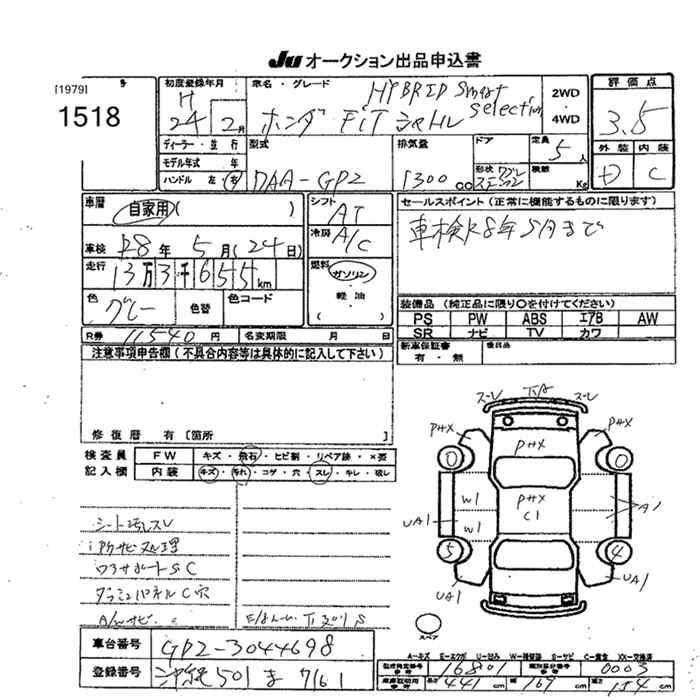 JU オークション出品申込書
[1979]
1518
初度登録年月
H
24 2月
車名・グレード
HYBRID Smart Selection
ホンダ FIT シャトル
2WD
・
4WD
評価点
3.5
外装 内装
D C
ディーラー・並行
モデル年式 年
ハンドル 左・右
型式
DAA-GP2
排気量
1300cc
ドア
形状 ワゴン
定員
5人
積載
Kg
車歴
自家用( )
シフト
AT
セールスポイント(正常に機能するものに限ります)
車検R8年5月まで
車検 R8年 5月(24日)
冷房
A/C
走行
13万3千655km
燃料
ガソリン
・
軽油
・
( )
色
グレー
色替
色コード
装備品(純正品に限り○を付けてください)
PS PW ABS エアB AW
SR ナビ TV カワ
R券 11540円
名変期限 月 日
新車保証書
有・無
後日品
注意事項申告欄(不具合内容等は具体的に記入して下さい)
修復歴 有 [箇所 ]
検査員
記入欄
FW キズ・飛石・ヒビ割・リペア跡・×要
内装 キズ・汚れ・コゲ・穴・スレ・キレ・吸し
シート汚レスレ
下廻サビ処理
コアサポートSC
ダッシュパネルC穴
スレ
スレ
PHX
PHX
PHX
0
0
W1
W1
PHX
C1
UA1
A1
5
4
UA1
UA1
スペア
車台番号 GP2-3044698
登録番号 沖縄 501 ま 7161
A-キズ E-エクボ U-凹み W-補修跡 S-サビ C-腐食 XX-交換済
型式指定番号 16801
類別区分番号 0003
長さ 441cm
幅 169cm
高さ 154cm